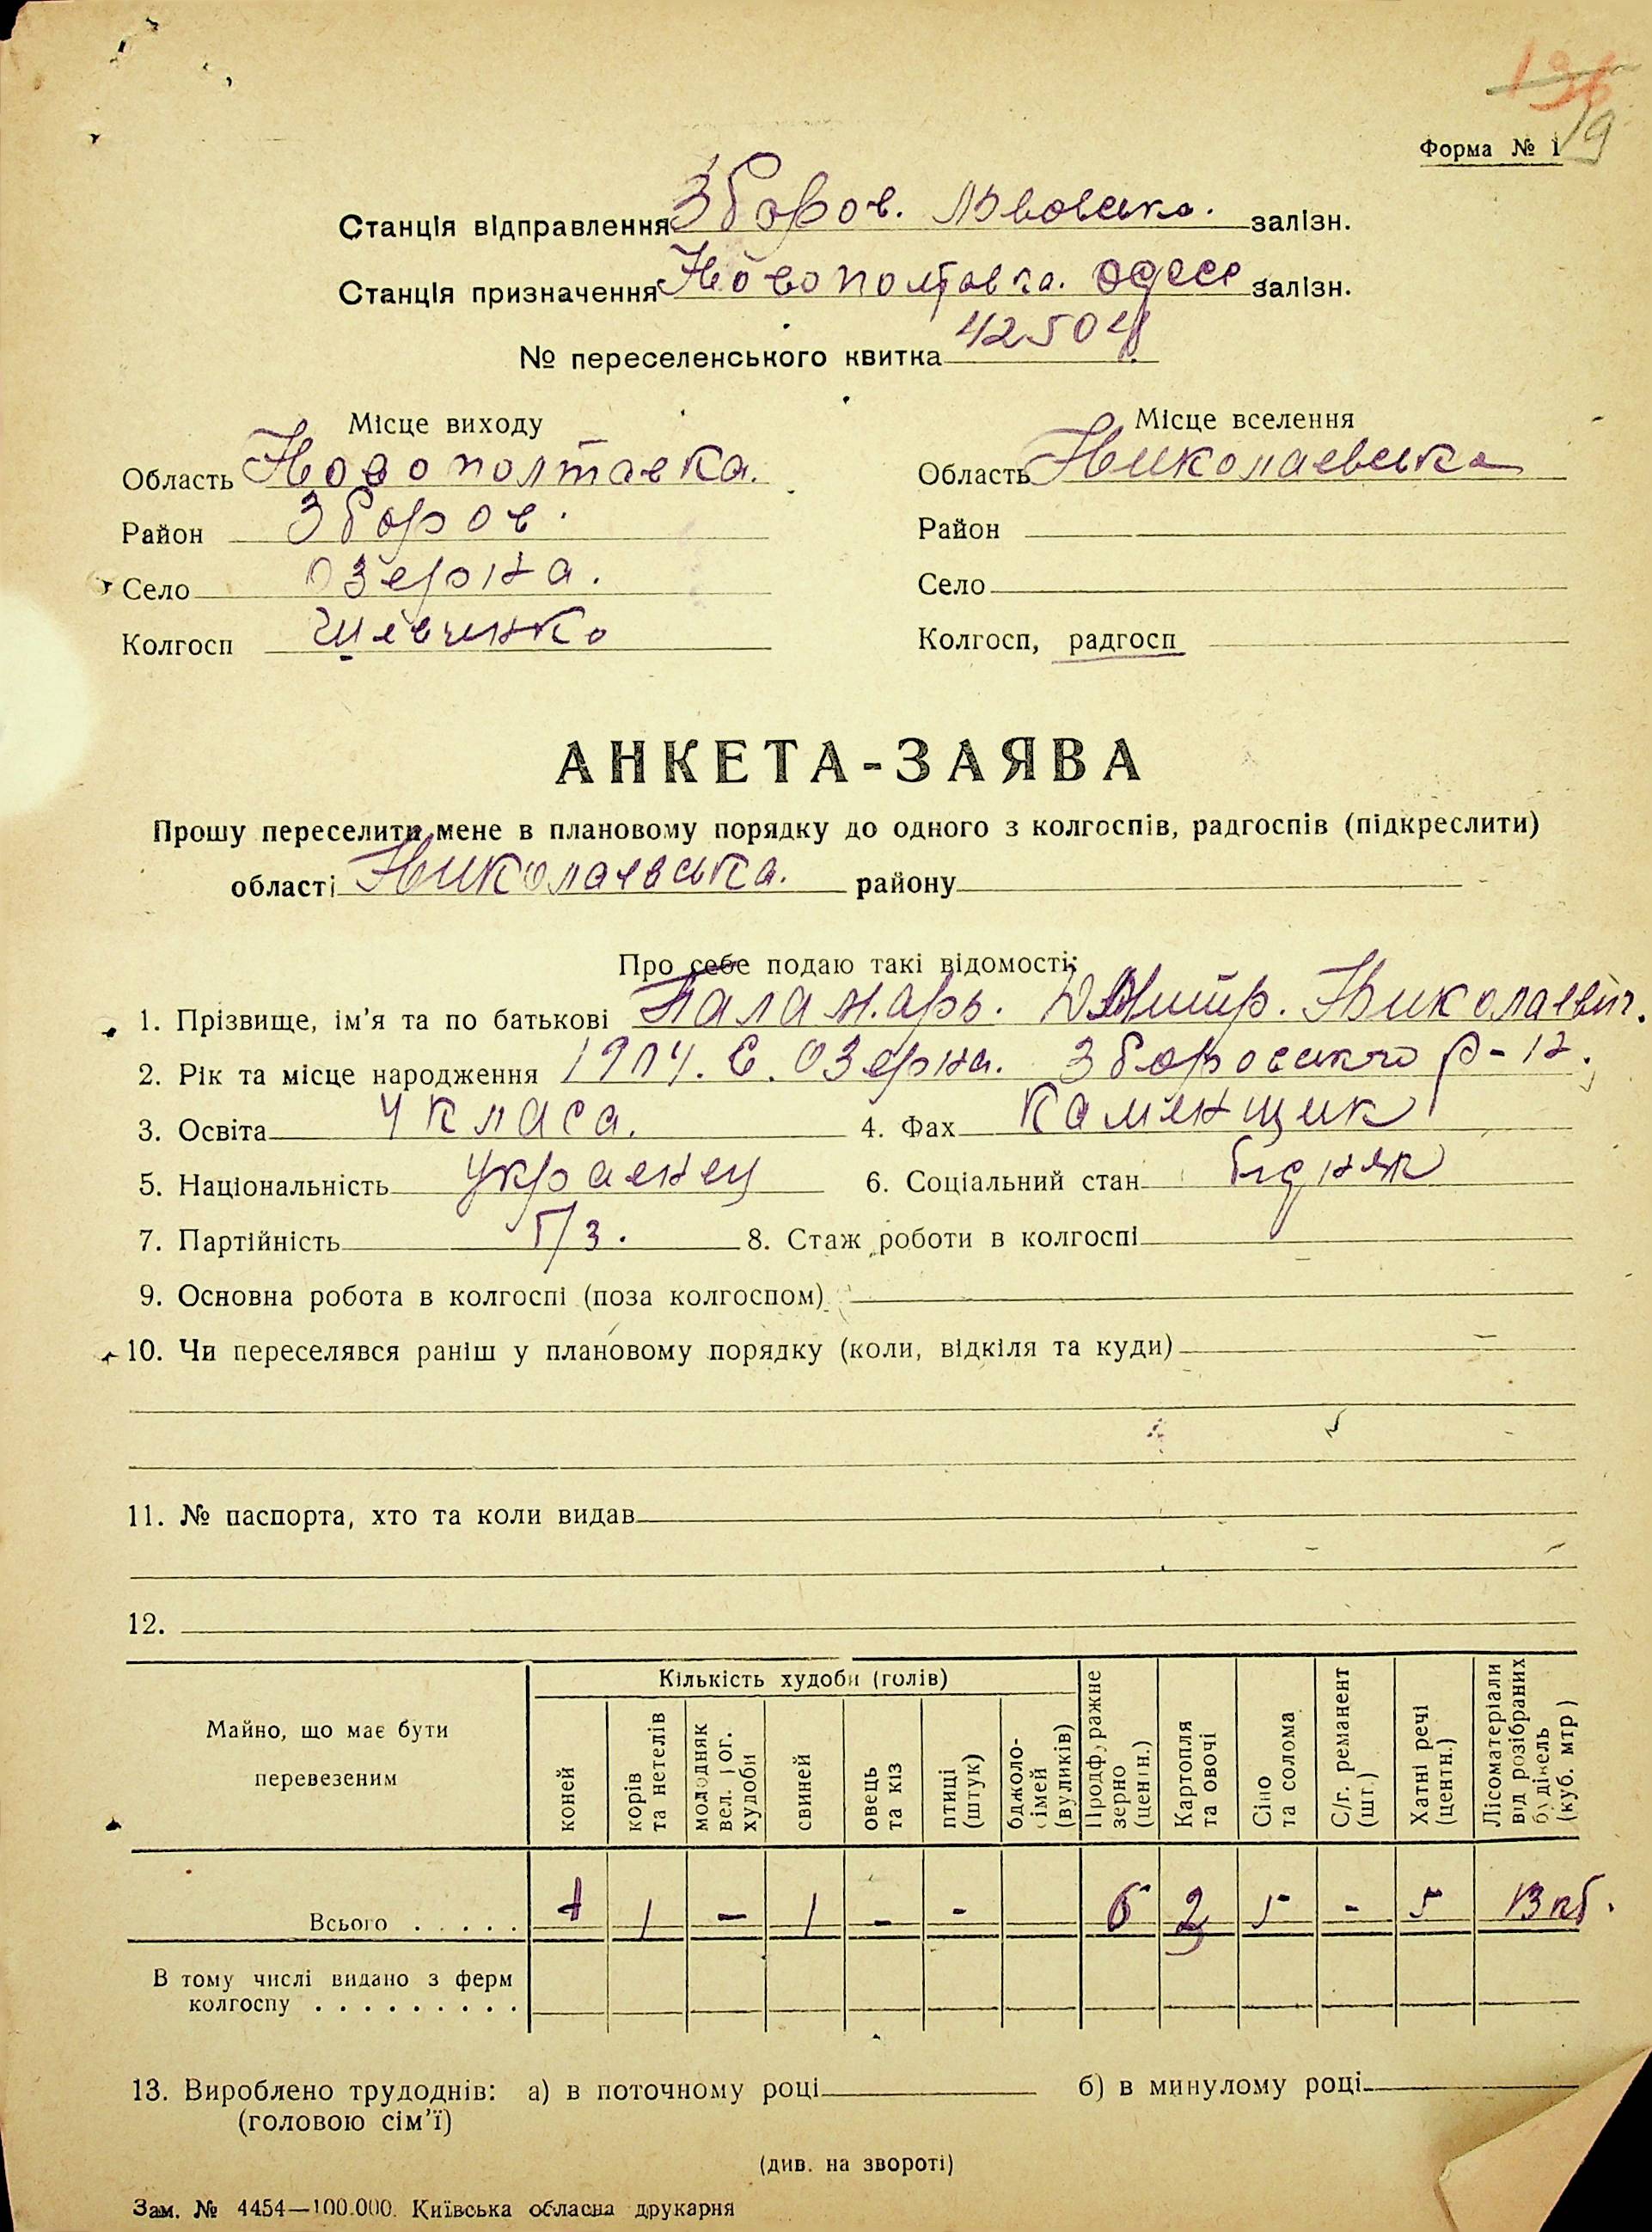 196
19
Форма № 1
Станція відправлення Зборов. Львовська. залізн.
Станція призначення Новополтавка. Одесс залізн.
№ переселенського квитка 42504
Місце виходу Місце вселення
Область Новополтавка. Область Николаевська
Район Зборов. Район
Село Озерна. Село
Колгосп Шевченко Колгосп, радгосп
АНКЕТА-ЗАЯВА
Прошу переселити мене в плановому порядку до одного з колгоспів, радгоспів (підкреслити)
області Николаевська. району
Про себе подаю такі відомості:
1. Прізвище, ім'я та по батькові Паламарь. Дмитр. Николаевич.
2. Рік та місце народження 1904. С. Озерна. Зборовского р-н.
3. Освіта 4 класа. 4. Фах Каменщик
5. Національність Украенец 6. Соціальний стан бідняк
7. Партійність Б/з. 8. Стаж роботи в колгоспі
9. Основна робота в колгоспі (поза колгоспом)
10. Чи переселявся раніш у плановому порядку (коли, відкіля та куди)
11. № паспорта, хто та коли видав
12.
Майно, що має бути перевезеним
Кількість худоби (голів)
коней
корів та нетелів
молодняк вел. рог. худоби
свиней
овець та кіз
птиці (штук)
бджоло-сімей (вуликів)
Продфуражне зерно (центн.)
Картопля та овочі
Сіно та солома
С/г. реманент (шт.)
Хатні речі (центн.)
Лісоматеріали від розібраних будівель (куб. мтр)
Всього . . . . . 1 - 1 - - 6 2 5 - 5 13 кб.
В тому числі видано з ферм
колгоспу . . . . . . . . .
13. Вироблено трудоднів: а) в поточному році б) в минулому році
(головою сім'ї)
(див. на звороті)
Зам. № 4454—100.000. Київська обласна друкарня